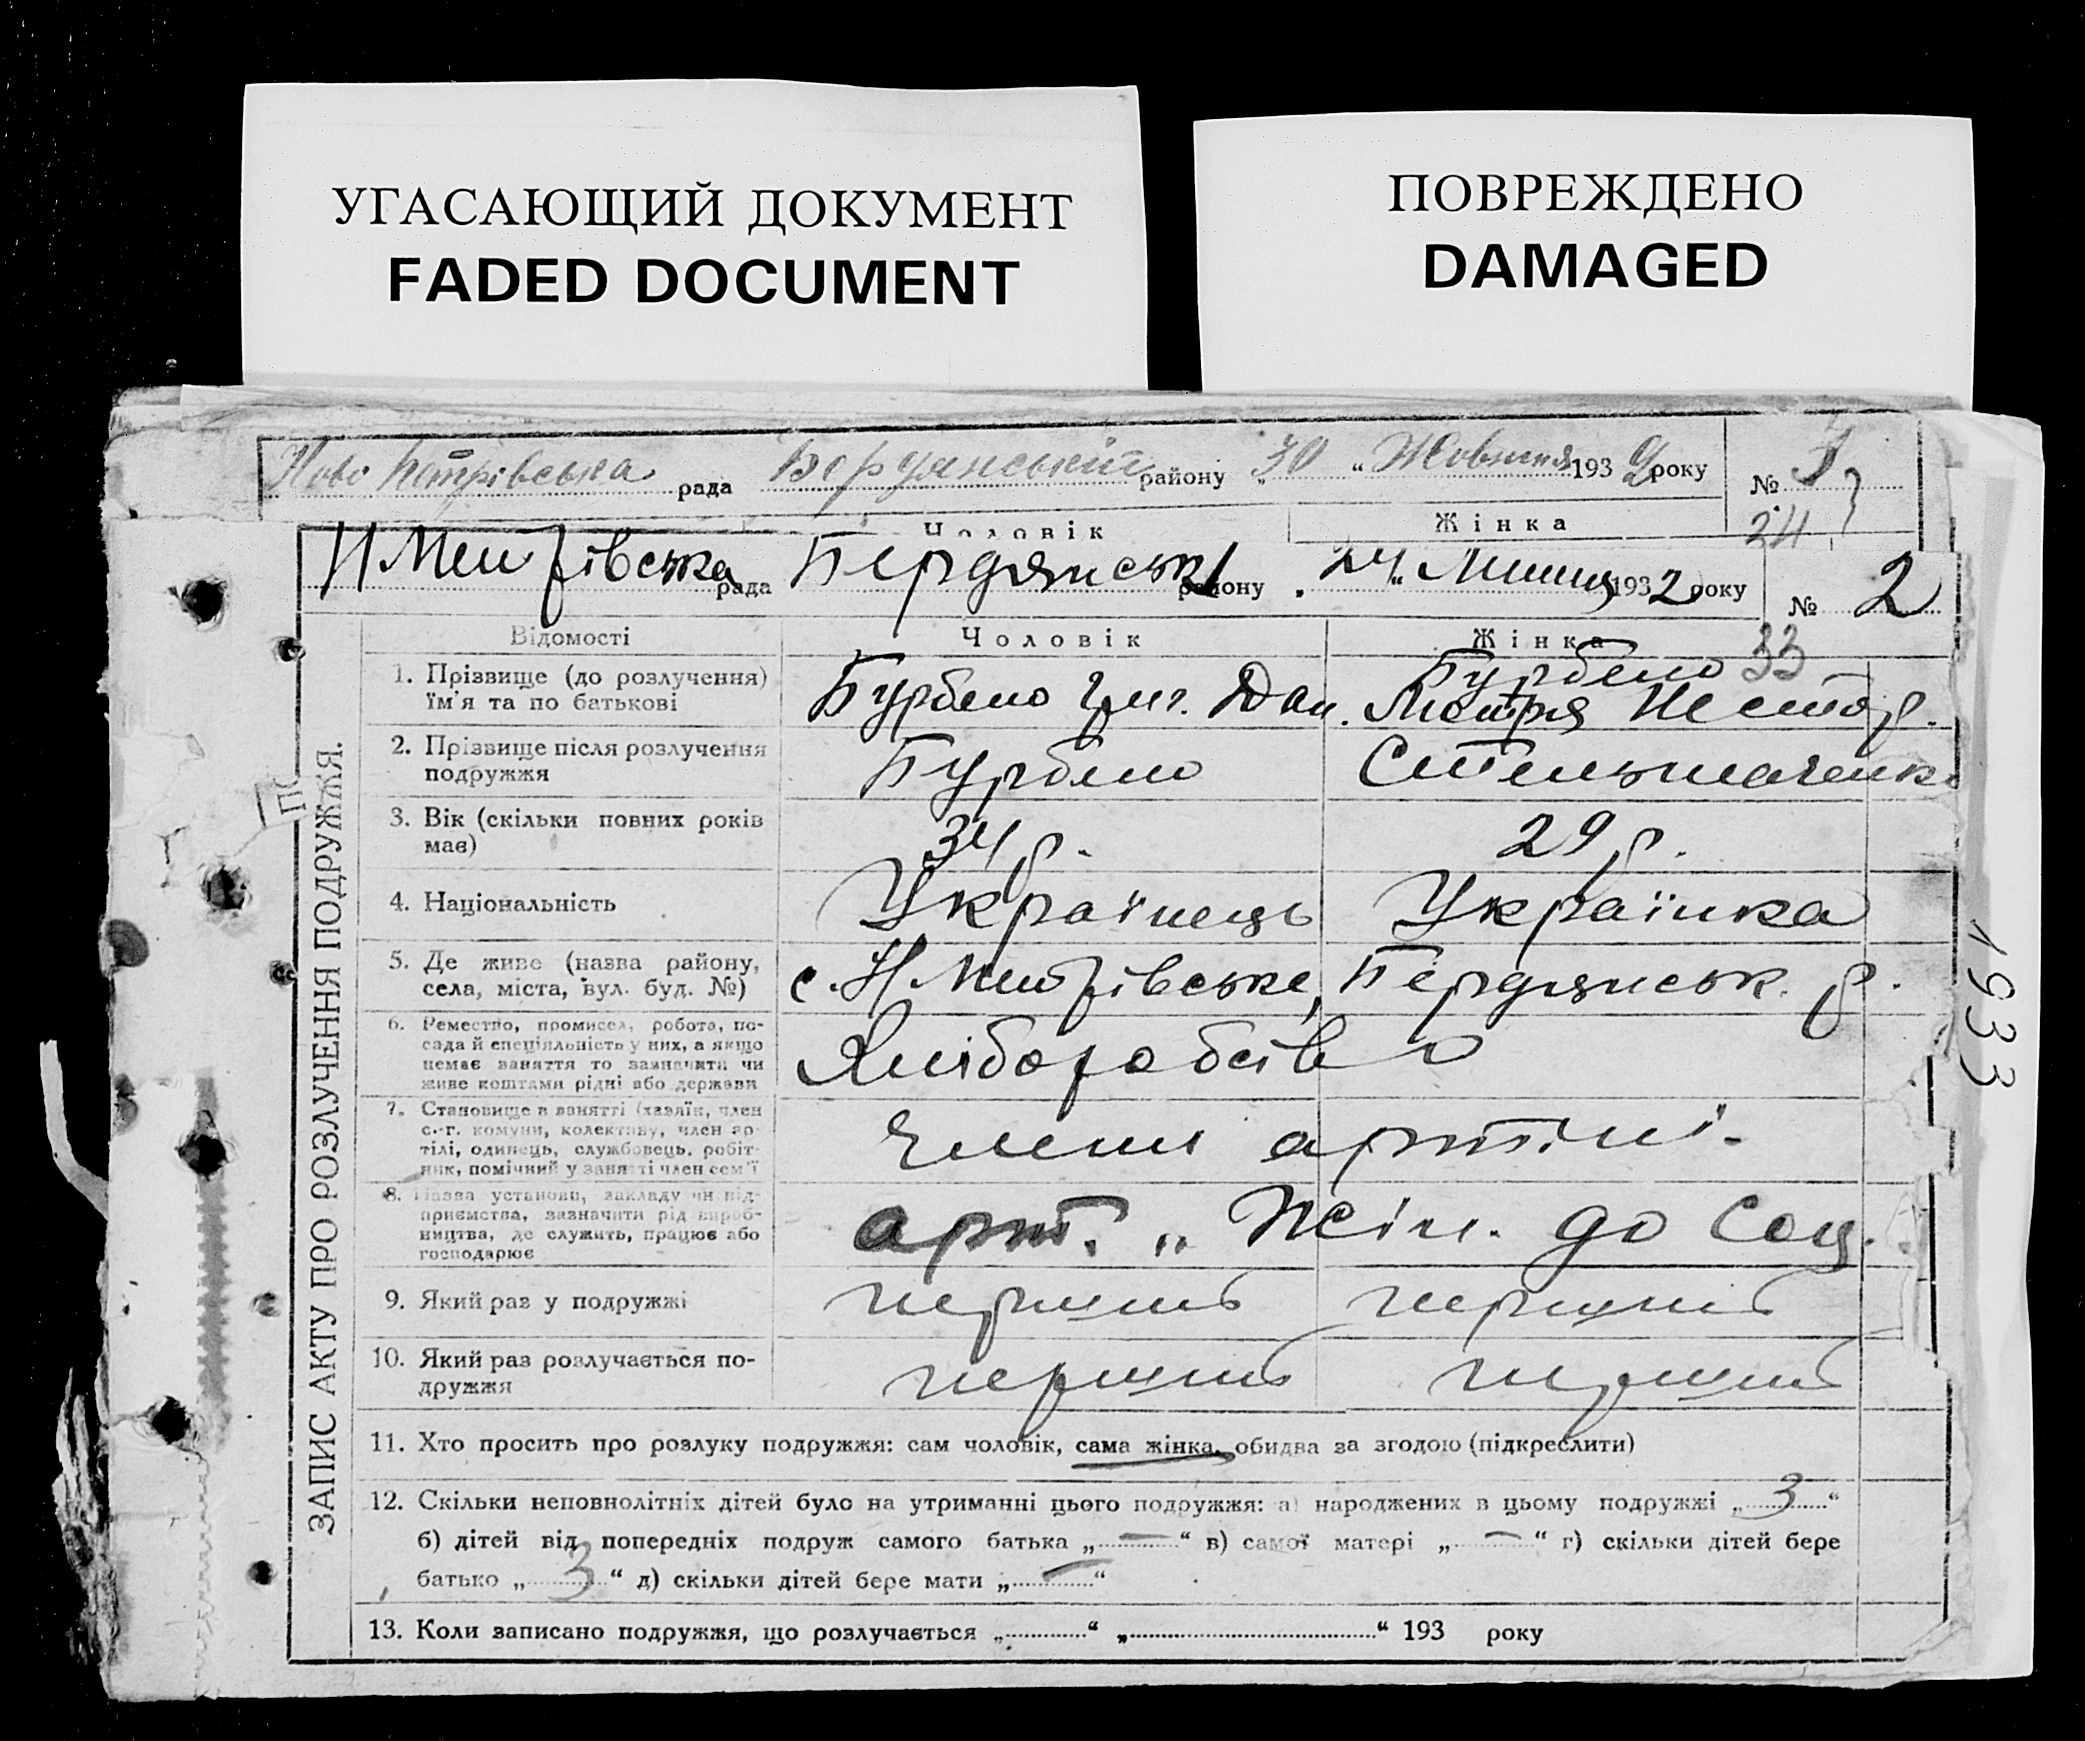 УГАСАЮЩИЙ ДОКУМЕНТ
FADED DOCUMENT
ПОВРЕЖДЕНО
DAMAGED
Ново Петрівська рада Бердянський району „30“ Жовтня 1932 року №
Чоловік Жінка
24
рада Бердянськ району 24 „ Липня 1932 року № 2
Відомості Чоловік Жінка
33
1. Прізвище (до розлучення) їм'я та по батькові
Бурбело Григ. Дан. Бурбело Мотря Нестор.
2. Прізвище після розлучення подружжя
Бурбело Стельмаченко
3. Вік (скільки повних років має)
34 р. 29 р.
4. Національність Українець Українка
5. Де живе (назва району, села, міста, вул. буд. №)
с. Бердянськ. р.
6. Ремество, промисел, робота, посада й спеціяльність у них, а якщо немає заняття то зазначити чи живе коштами рідні або держави
Хліборобство
7. Становище в занятті (хазяїн, член с.-г. комуни, колективу, член артілі, одинець, службовець, робітник, помічний у занятті член сем'ї
Члени артілі.
8. Назва установи, закладу чи підприємства, зазначити рід виробництва, де служить, працює або господарює
арт. „ до Соц.
9. Який раз у подружжі перший перший
10. Який раз розлучається подружжя перший перший
11. Хто просить про розлуку подружжя: сам чоловік, сама жінка, обидва за згодою (підкреслити)
12. Скільки неповнолітніх дітей було на утриманні цього подружжя: а) народжених в цьому подружжі „ 3 “
б) дітей від попередніх подруж самого батька „ — “ в) самої матері „ — “ г) скільки дітей бере
батько „ 3 “ д) скільки дітей бере мати „ — “
13. Коли записано подружжя, що розлучається „ “ „ “ 193 року
ЗАПИС АКТУ ПРО РОЗЛУЧЕННЯ ПОДРУЖЖЯ.
1933